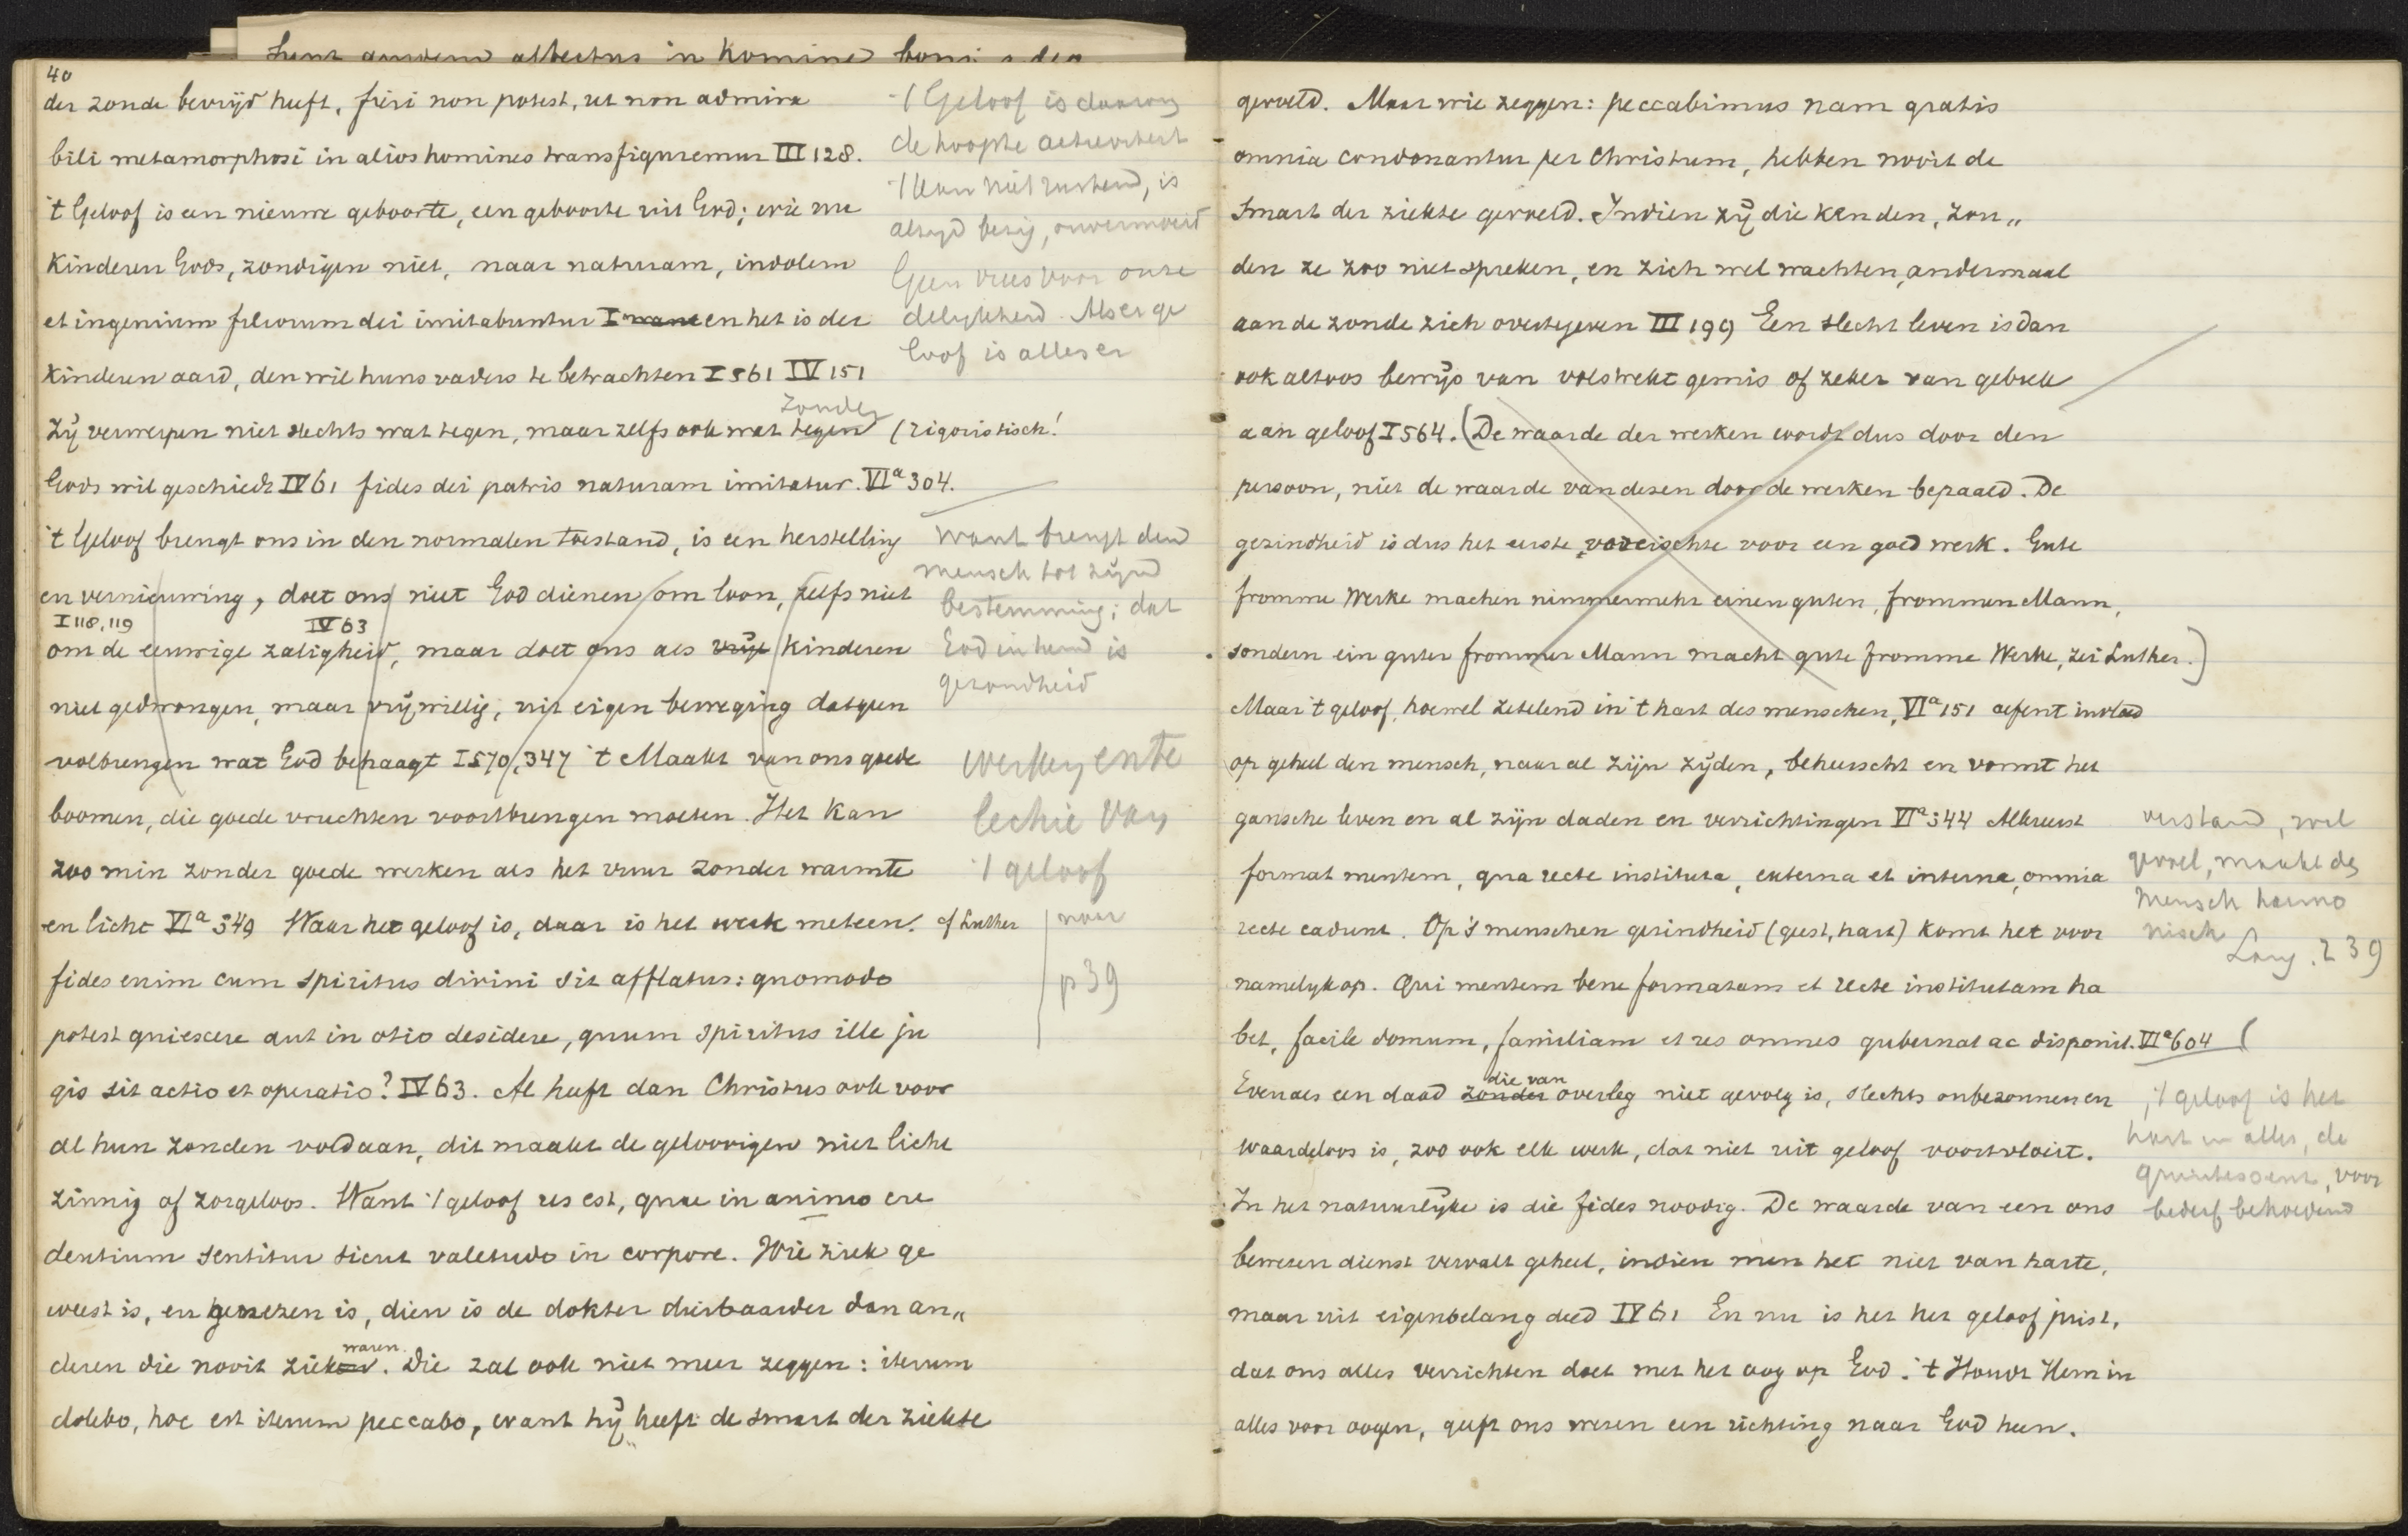 Sunt quidem affectus in homine boni a deo
40
der zonde bevrijd heeft, fieri non potest, ut non admira
bili metamorphosi in alios homines transfiguremur III 128.
't Geloof is een nieuwe geboorte, een geboorte uit God; wie nu
Kinderen Gods, zondigen niet, naar naturam, indolem
et ingenium filiorum dei imitabuntur I want en het is der
kinderen aard, den wil huns vaders te betrachten I 561 IV 151
zonder
Zij verwerpen niet slechts wat tegen, maar zelfs ook wat tegen (rigoristisch!
Gods wil geschiedt IV 61 fides dei patris naturam imitatur. VIa 304.
't Geloof brengt ons in den normalen toestand, is een herstelling
en vernieuwing, doet ons niet God dienen om loon, zelfs niet
I 118, 119 IV 63
om de eeuwige zaligheid, maar doet ons als vrije kinderen
niet gedwongen, maar vrijwillig, uit eigen beweging datgeen
volbrengen wat God behaagt I 570, 347 't Maakt van ons goede
boomen, die goede vruchten voortbrengen moeten. Het kan
zoo min zonder goede werken als het vuur zonder warmte
en licht VIa 349 Waar het geloof is, daar is het werk meteen. cf Luther
fides enim cum spiritus divini sit afflatus: quomodo
potest quiescere aut in otio desidere, quum spiritus ille ju
gis sit actio et operatio? IV 63. Al heeft dan Christus ook voor
al hun zonden voldaan, dit maakt de geloovigen niet licht
zinnig of zorgeloos. Want 't geloof res est, quae in animo cre
dentium sentitur sicut valetudo in corpore. Wie ziek ge
weest is, en genezen is, dien is de dokter dierbaarder dan an„
waren.
deren die nooit ziek. Die zal ook niet meer zeggen: iterum
dolebo, hoc est iterum peccabo, want hij heeft de smart der ziekte
't Geloof is daarom
de hoogste activiteit
't kan niet rustend, is
altyd bezig, onvermoeid
Geen vrees voor onze
delykheid. Als er ge
loof is alles er
want brengt den
mensch tot zijne
bestemming; dat
God in hem is
gezondheid
werking ente
lechie van
't geloof
naar
p 39
gevoeld. Maar wie zeggen: peccabimus nam gratis
omnia condonantur per Christum, hebben nooit de
smart der ziekte gevoeld. Indien zij die kenden, zou„
den ze zoo niet spreken, en zich wel wachten, andermaal
aan de zonde zich overtegeven III 199 Een slecht leven is dan
ook altoos bewijs van volstrekt gemis of zeker van gebrek
aan geloof I 564. (De waarde der werken wordt dus door den
persoon, niet de waarde van dezen door de werken bepaald. De
gezindheid is dus het eerste vereischte voor een goed werk. Gute
fromme Werke machen nimmermehr einen guten, frommen Mann,
sondern ein guter frommer Mann macht gute fromme Werke, zei Luther.)
Maar 't geloof, hoewel zetelend in 't hart des menschen, VIa 151 oefent invloed
op geheel den mensch, naar al zijn zijden, beheerscht en vormt het
gansche leven en al zijn daden en verrichtingen VIa 544 Allereerst
format mentem, qua recte instituta, externa et interna, omnia
recte cadunt. Op 's menschen gezindheid (geest, hart) komt het voor
namelyk op. Qui mentem bene formatam et recte institutam ha
bet, facile domum, familiam et res omnes gubernat ac disponit. VIa 604 (
die van
Evenals een daad zonder overleg niet gevolg is, slechts onbezonnen en
waardeloos is, zoo ook elk werk, dat niet uit geloof voortvloeit.
In het natuurlijke is die fides noodig. De waarde van een ons
bewezen dienst vervalt geheel, indien men het niet van harte,
maar uit eigenbelang deed IV 61 En nu is het het geloof juist,
dat ons alles verrichten doet met het oog op God. 't Houdt Hem in
alles voor oogen, geeft ons wezen een richting naar God heen.
verstand, wil
gevoel, maakt den
mensch harmo
nisch
Lang. 239
't geloof is het
hart in alles, de
quintessens, voor
bederf behoedend